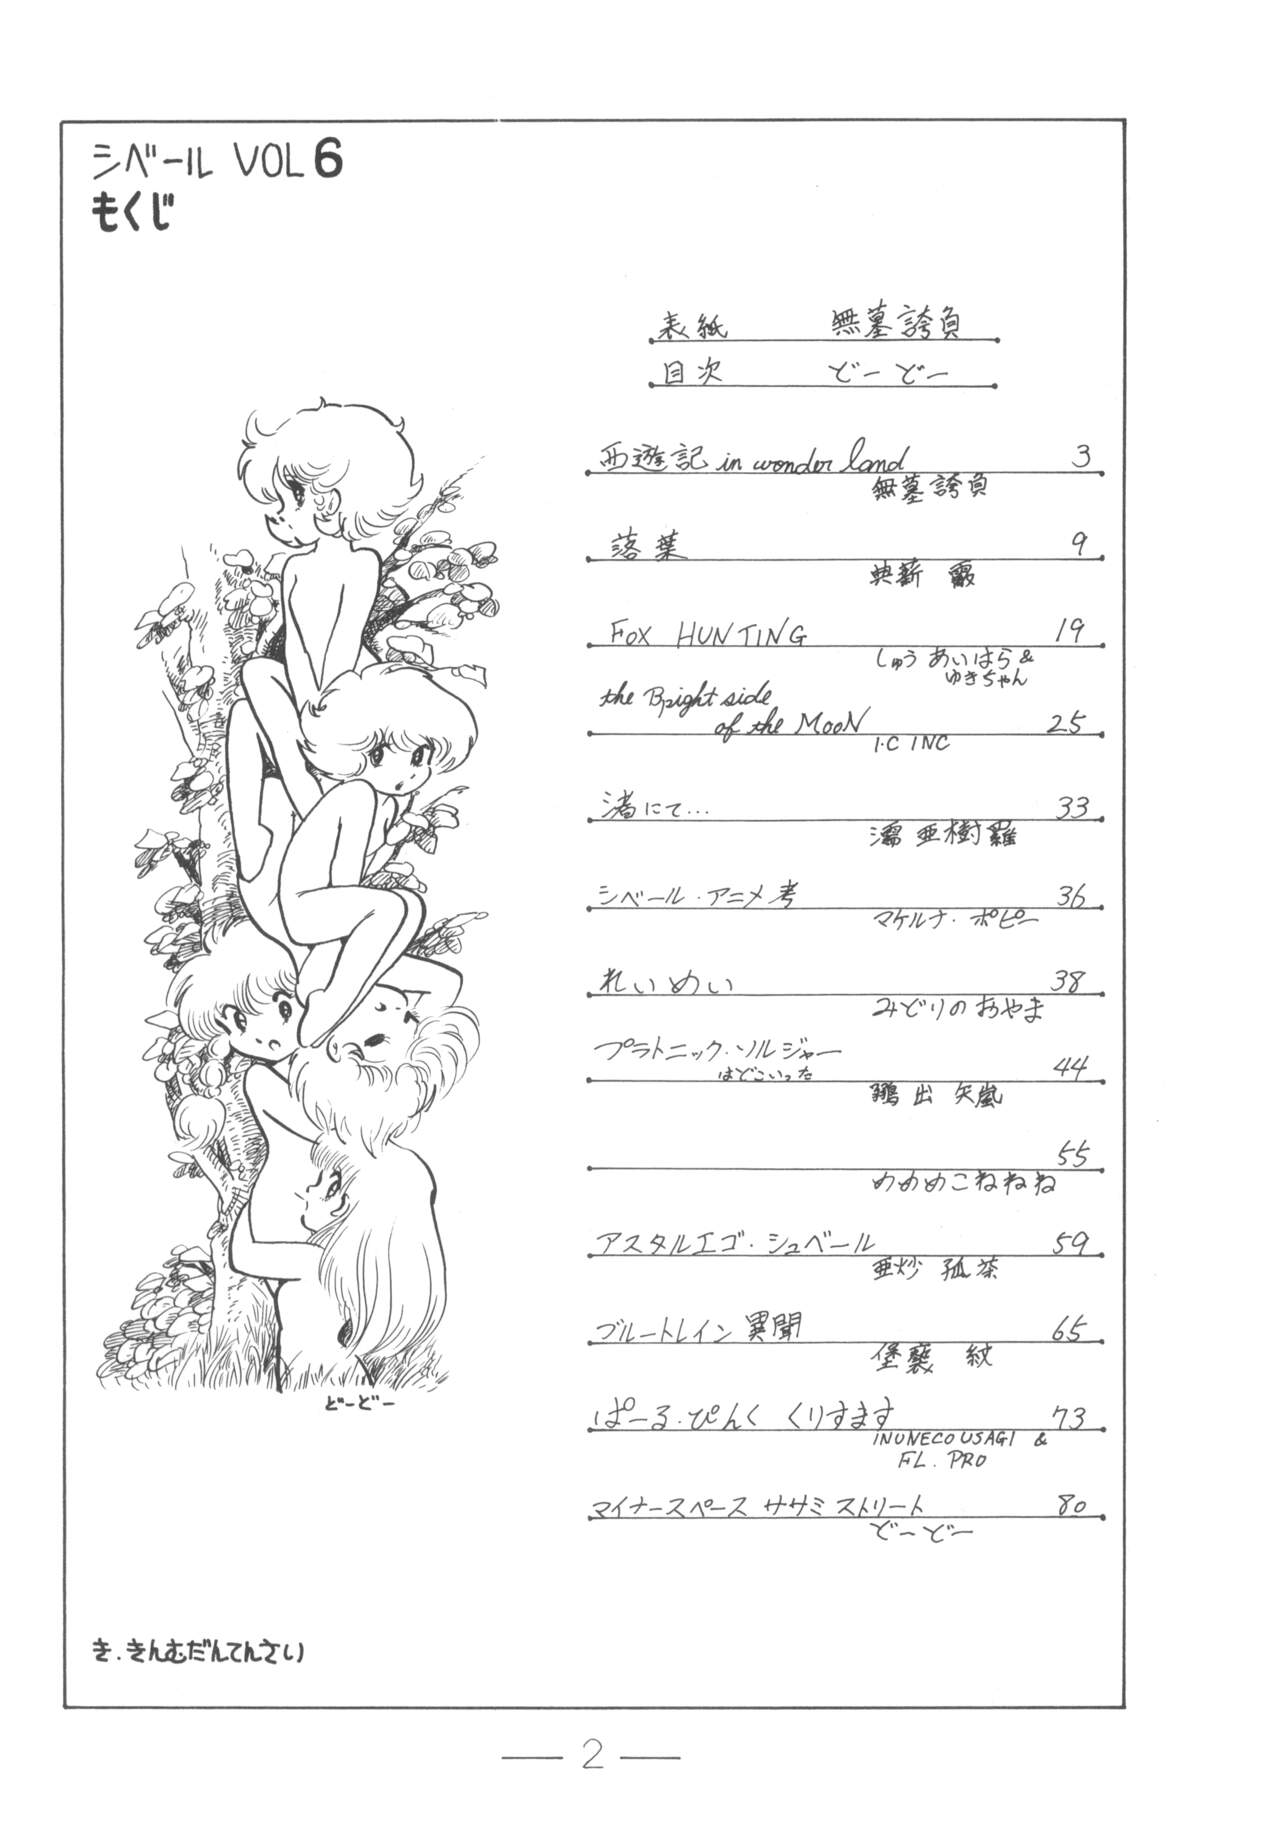 シベール VOL 6
もくじ
表紙 無墓誇負
目次 どーどー
西遊記 in wonder land 3
無墓誇負
落葉 9
典薪
FOX HUNTING 19
しゅう あいはら &
ゆきちゃん
the Bright side
of the MooN 25
I.C INC
渚にて… 33
亜樹羅
シベール・アニメ考 36
マケルナ・ポピー
れいめい 38
みどりの あやま
プラトニック・ソルジャー
はどこいった 44
出 矢嵐
55
めめめこねねね
アスタルエゴ・シュベール 59
亜炒 孤茶
ブルートレイン異聞 65
紋
ぱーる・ぴんく くりすます 73
INUNECOUSAGI &
FL. PRO
マイナースペース ササミ ストリート 80
どーどー
どーどー
き.きんむだんてんさい
— 2 —